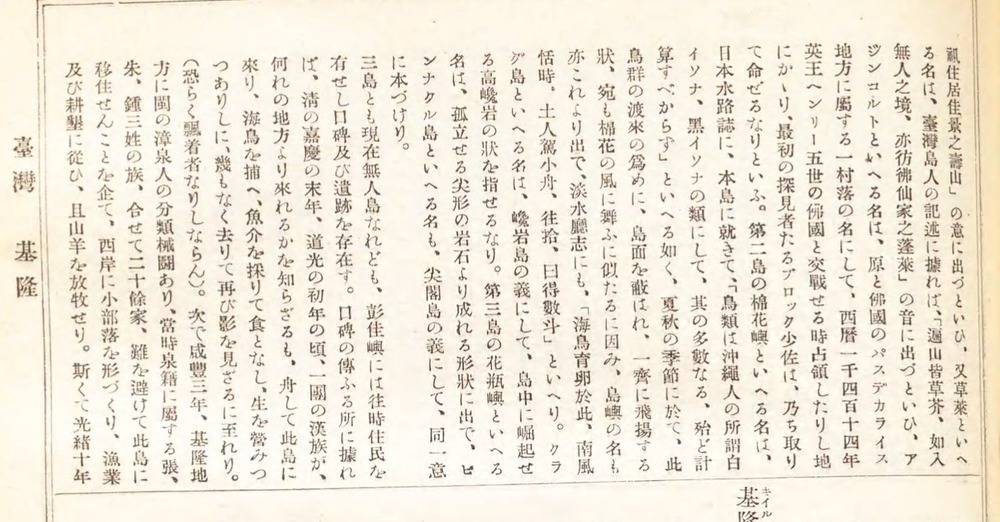 祝住居住景之壽山」の意に出づといひ、又草萊といへ
る名は、臺灣島人の記述に據れば、「遍山皆草芥、如入
無人之境、亦彷彿仙家之蓬萊」の音に出づといひ、ア
ジンコルトといへる名は、原と佛國のパスデカライス
地方に屬する一村落の名にして、西曆一千四百十四年
英王ヘンリー五世の佛國と交戰せる時占領したりし地
にかゝり、最初の探見者たるブロック少佐は、乃ち取り
て命ぜるなりといふ。第二島の棉花嶼といへる名は、
日本水路誌に、本島に就きて、「鳥類は沖繩人の所謂白
イソナ、黑イソナの類にして、其の多數なる、殆ど計
算すべからず」といへる如く、夏秋の季節に於て、此
鳥群の渡來の爲めに、島面を蔽はれ、一齊に飛揚する
狀、宛も棉花の風に舞ふに似たるに因み、島嶼の名も
亦これより出で、淡水廳志にも、「海鳥育卵於此、南風
恬時。土人駕小舟、往拾、曰得數斗」といへり。クラ
グ島といへる名は、巉岩島の義にして、島中に崛起せ
る高巉岩の狀を指せるなり。第三島の花瓶嶼といへる
名は、孤立せる尖形の岩石より成れる形狀に出で、ピ
ンナクル島といへる名も、尖閣島の義にして、同一意
に本づけり。
三島とも現在無人島なれども、彭佳嶼には往時住民を
有せし口碑及び遺跡を存在す。口碑の傳ふる所に據れ
ば、淸の嘉慶の末年、道光の初年の頃、一團の漢族が、
何れの地方より來れるかを知らざるも、舟して此島に
來り、海鳥を捕へ、魚介を採りて食となし、生を營みつ
つありしに、幾もなく去りて再び影を見ざるに至れり。
(恐らく飄着者なりしならん)。次で咸豐三年、基隆地
方に閩の漳泉人の分類械鬪あり、當時泉籍に屬する張、
朱、鍾三姓の族、合せて二十餘家、難を避けて此島に
移住せんことを企て、西岸に小部落を形づくり、漁業
及び耕墾に從ひ、且山羊を放牧せり。斯くて光緖十年
臺灣 基隆
基隆
キイル